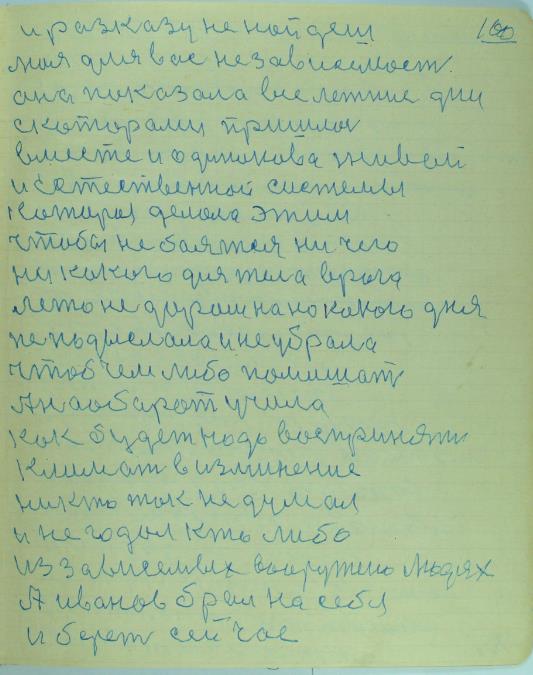 и разказу не найдеш 100
моя для вас независемост.
она показала все летние дни
скоторами пришлос
вместе и одинокова
и естественной системы
которая делала этим
чтобы не боятся ни чего
ни какого дятела врага
лето не даром на какого дня
не подмела и не убрала
чтоб чем либо помишат
А наобарот учила
как будет надо воспринят
климат в изминение
никто так не думал
и не годал кто либо
из зависемых вокружено людях
А иванов брал на себя
и берет сей час